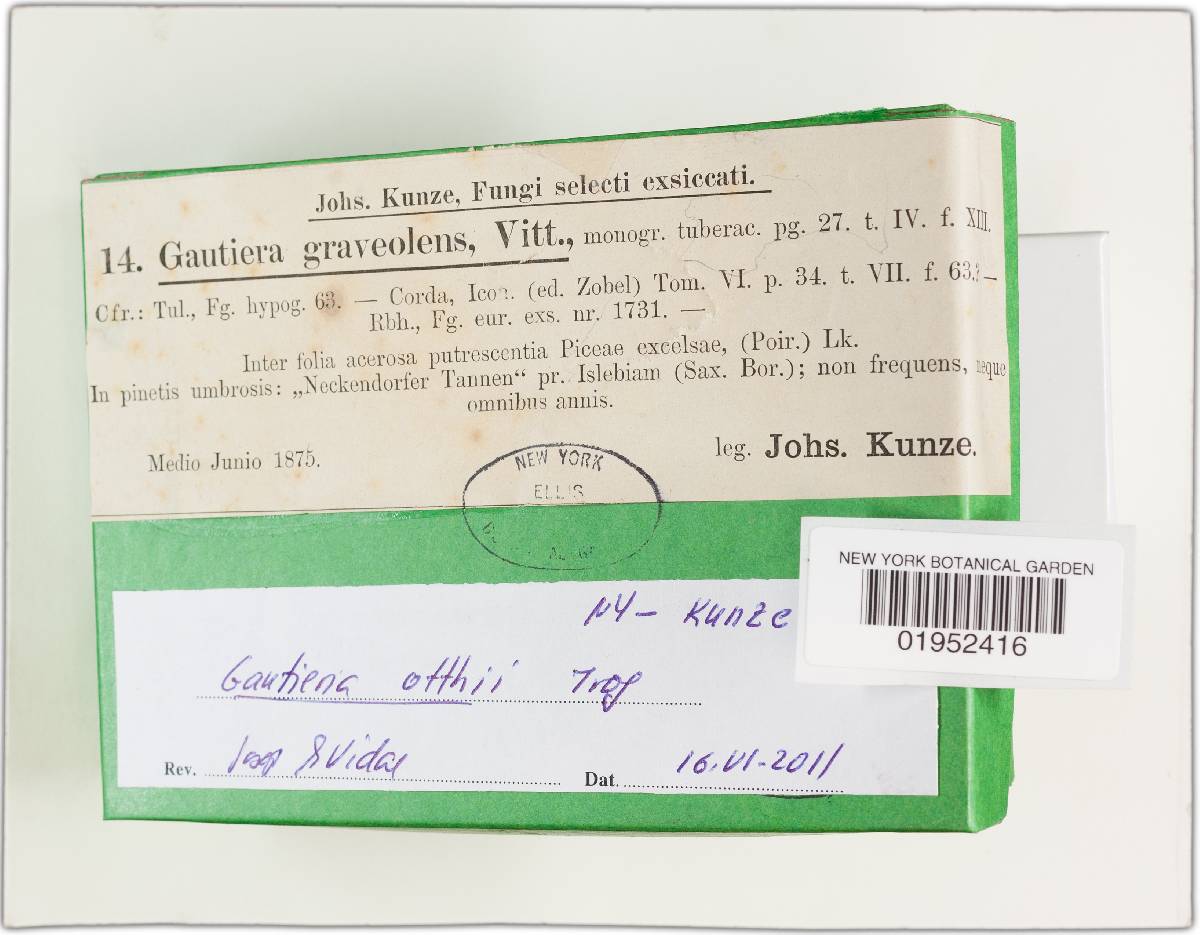 Johs. Kunze, Fungi selecti exsiccati.
14. Gautiera graveolens, Vitt., monogr. tuberac. pg. 27. t. IV. f. XIII.
Cfr.: Tul., Fg. hypog. 63. — Corda, Icon. (ed. Zobel) Tom. VI. p. 34. t. VII. f. 63. —
Rbh., Fg. eur. exs. nr. 1731. —
Inter folia acerosa putrescentia Piceae excelsae, (Poir.) Lk.
In pinetis umbrosis: „Neckendorfer Tannen“ pr. Islebiam (Sax. Bor.); non frequens, neque
omnibus annis.
Medio Junio 1875.
leg. Johs. Kunze.
NEW YORK
ELLIS
NEW YORK BOTANICAL GARDEN
01952416
NY - Kunze
Gautieria otthii Trog
Rev. Josep Vidal
Dat. 16.VI-2011